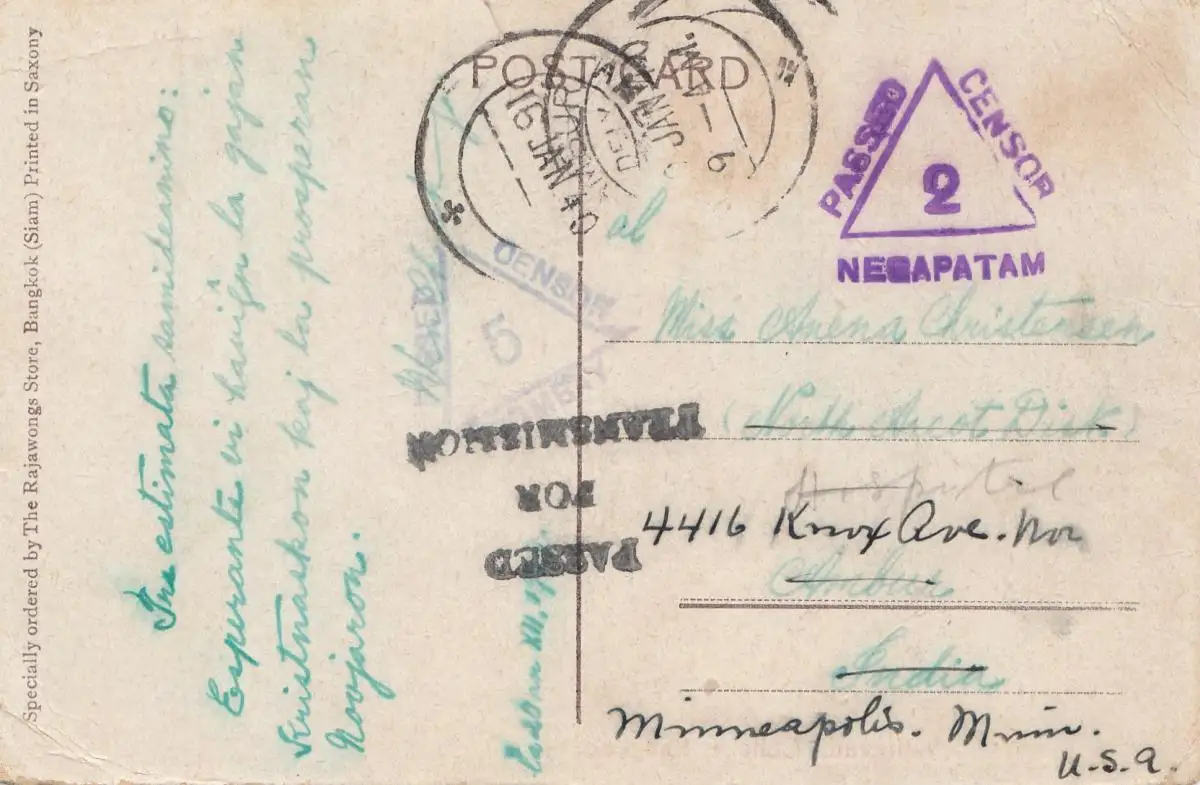 Specially ordered by The Rajawongs Store, Bangkok (Siam) Printed in Saxony
Tre estimata samideanino:
Esperante vi havigu la gajan
Kristnaskon kaj la prosperan
Novjaron.
POST CARD
16 JAN
JAN
PASSED CENSOR
2
NEGAPATAM
CENSOR
5
BOMBAY
PASSED
FOR
TRANSMISSION
al
Miss Anena Christensen
(North Arcot Distr)
Hospital
4416 Knox Ave. Nor
India
Minneapolis. Minn.
U.S.A.